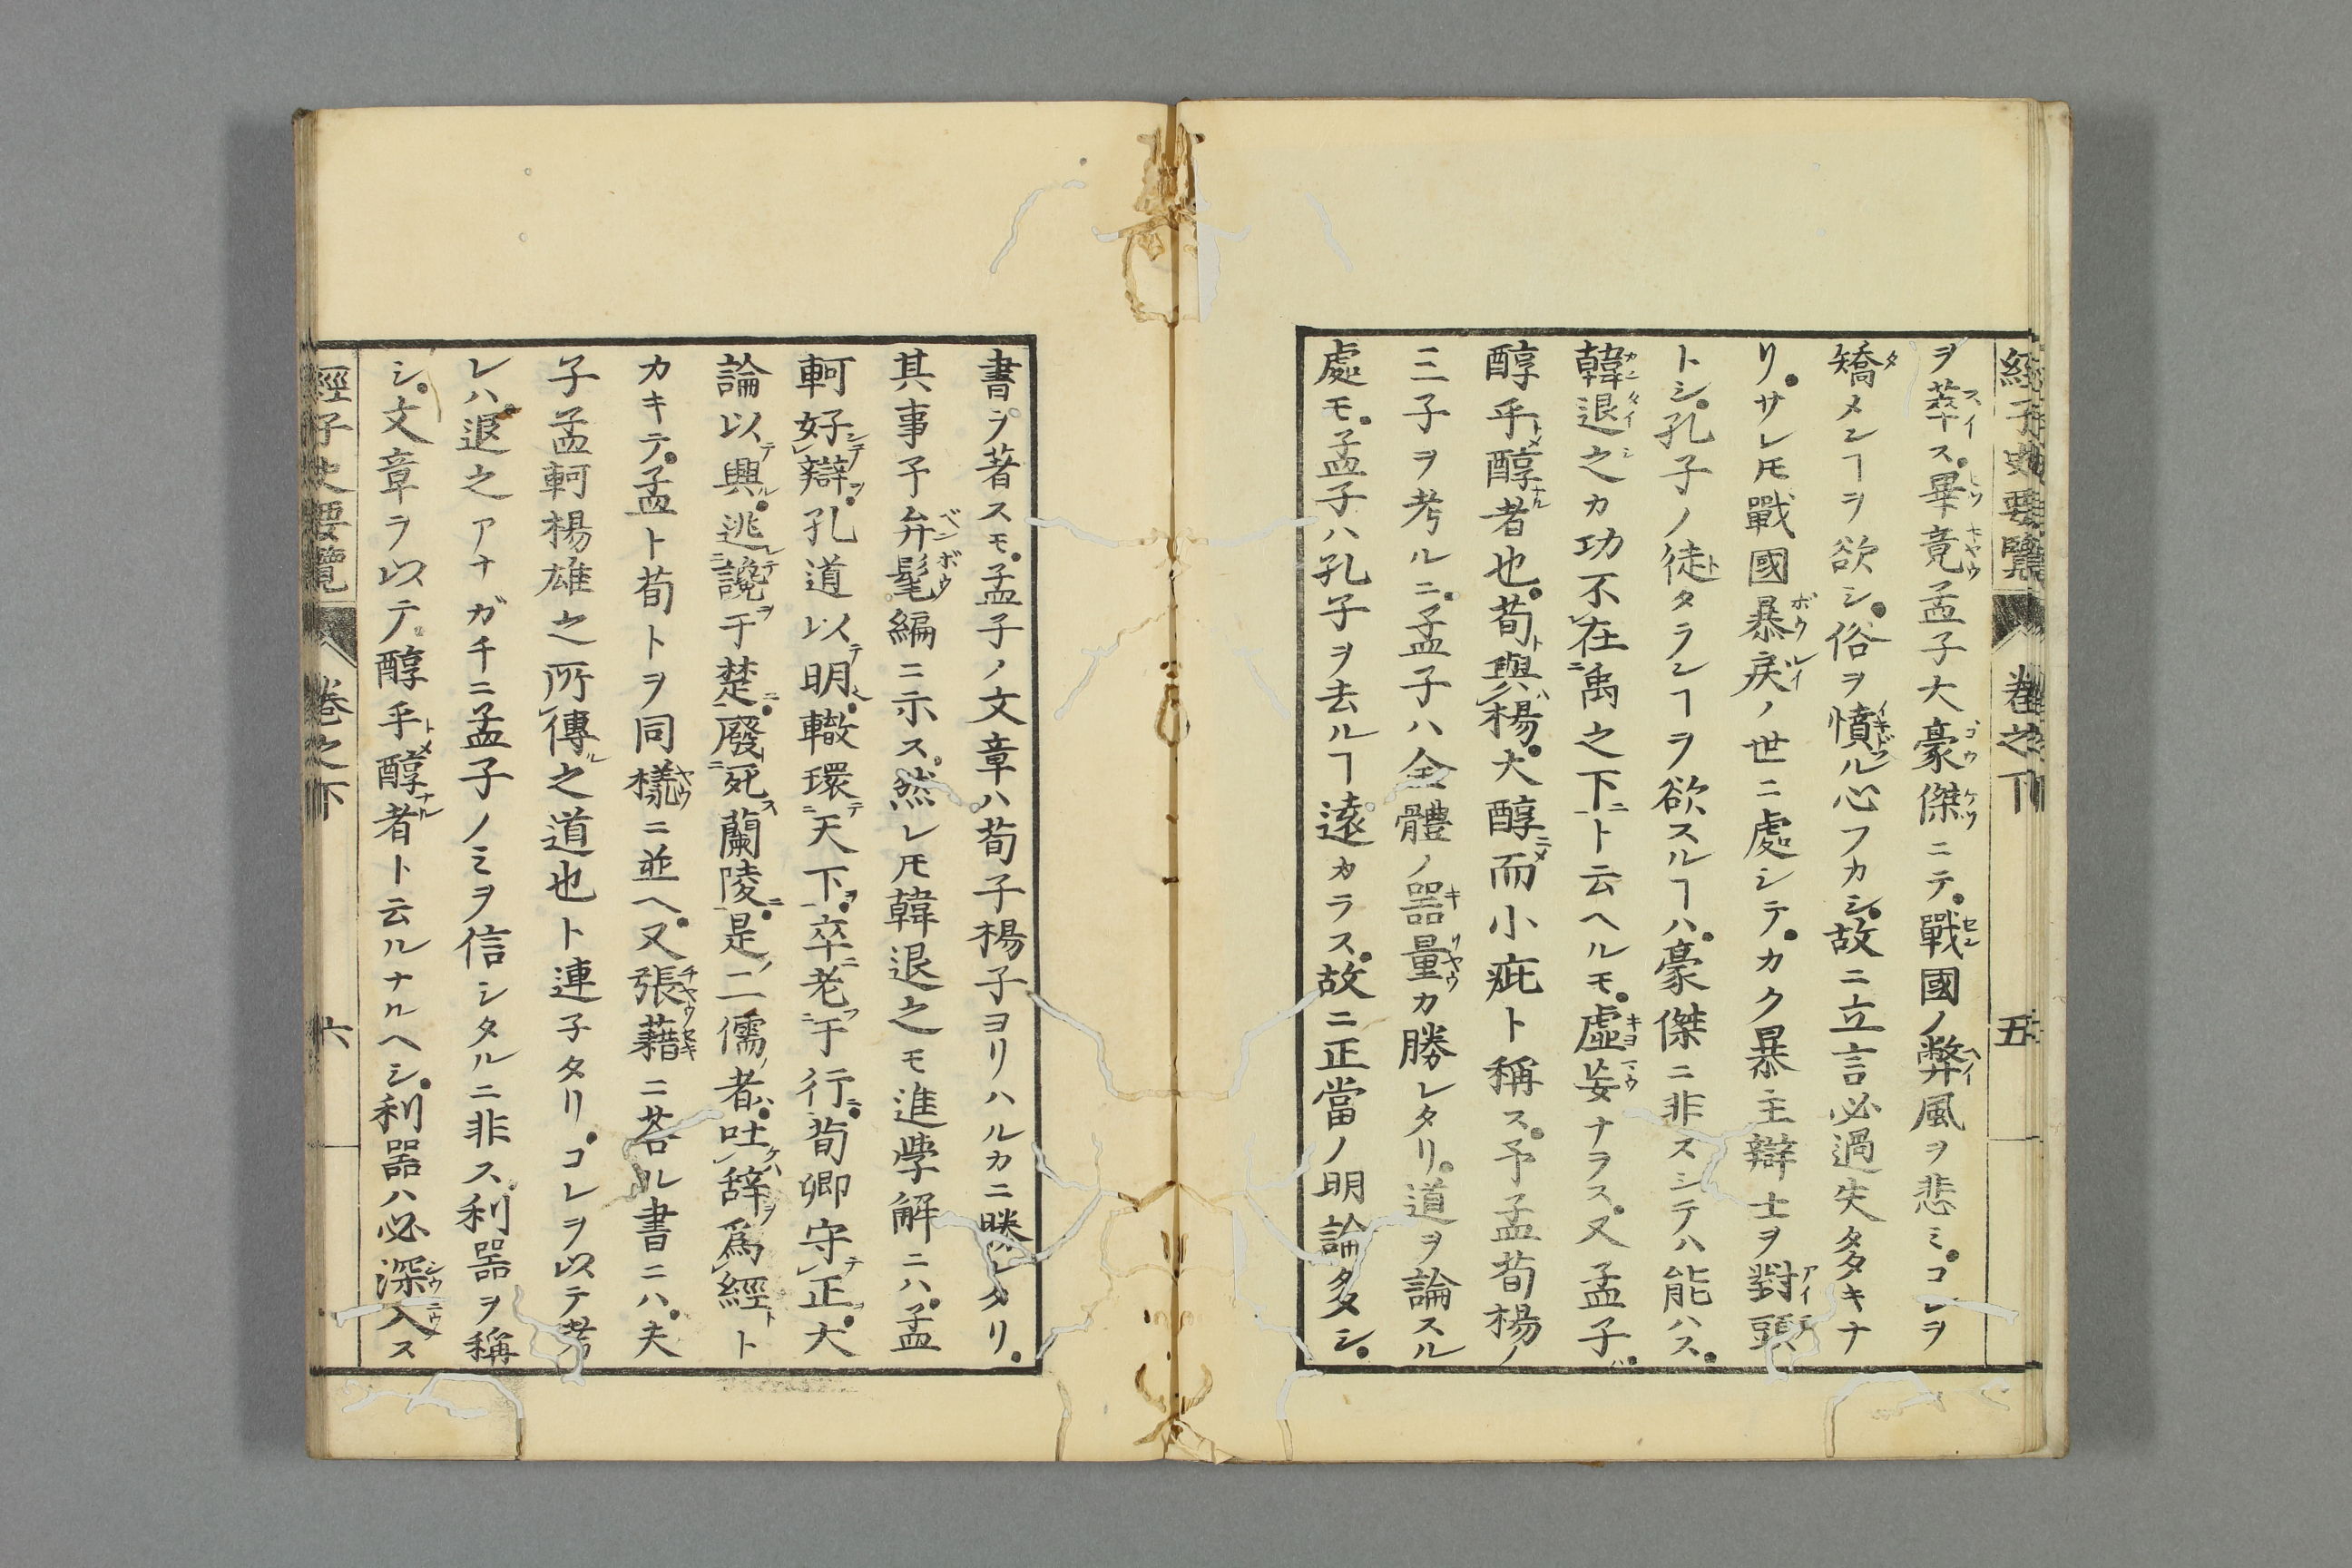 經子史要覽 卷之下 五
ヲ萃ス。畢竟孟子大豪傑ニテ。戰國ノ弊風ヲ悲ミ。コレヲ
矯メンヿヲ欲シ。俗ヲ憤ル心フカシ。故ニ立言必過失多キナ
リ。サレ𪜈戰國暴戾ノ世ニ處シテ。カク暴主辯士ヲ對頭
トシ。孔子ノ徒タランヿヲ欲スルヿハ。豪傑ニ非スンテハ能ハス。
韓退之カ功不在禹之下ト云ヘルモ。虛妄ナラス。又孟子ハ。
醇乎醇者也。荀與楊。大醇而小疵ト稱ス。予孟荀楊ノ
三子ヲ考ルニ。孟子ハ全體ノ器量カ勝レタリ。道ヲ論スル
處モ。孟子ハ孔子ヲ去ルヿ遠カラス。故ニ正當ノ明論多シ。
書ヲ著スモ。孟子ノ文章ハ荀子楊子ヨリハルカニ勝レタリ。
其事予弁髦編ニ示ス。然レ𪜈韓退之モ進學解ニハ。孟
軻好辯。孔道以明。轍環天下。卒老于行。荀卿守正。大
論以興。逃讒于楚。廢死蘭陵。是二儒者。吐辞爲經ト
カキテ。孟ト荀トヲ同樣ニ並ヘ。又張藉ニ荅ル書ニハ。夫
子孟軻楊雄之所傳之道也ト連子タリ。コレヲ以テ考
レハ。退之アナガチニ孟子ノミヲ信シタルニ非ス。利器ヲ稱
シ。文章ヲ以テ。醇乎醇者ト云ルナルヘシ。利器ハ必深入ス
經子史要覽 卷之下 六